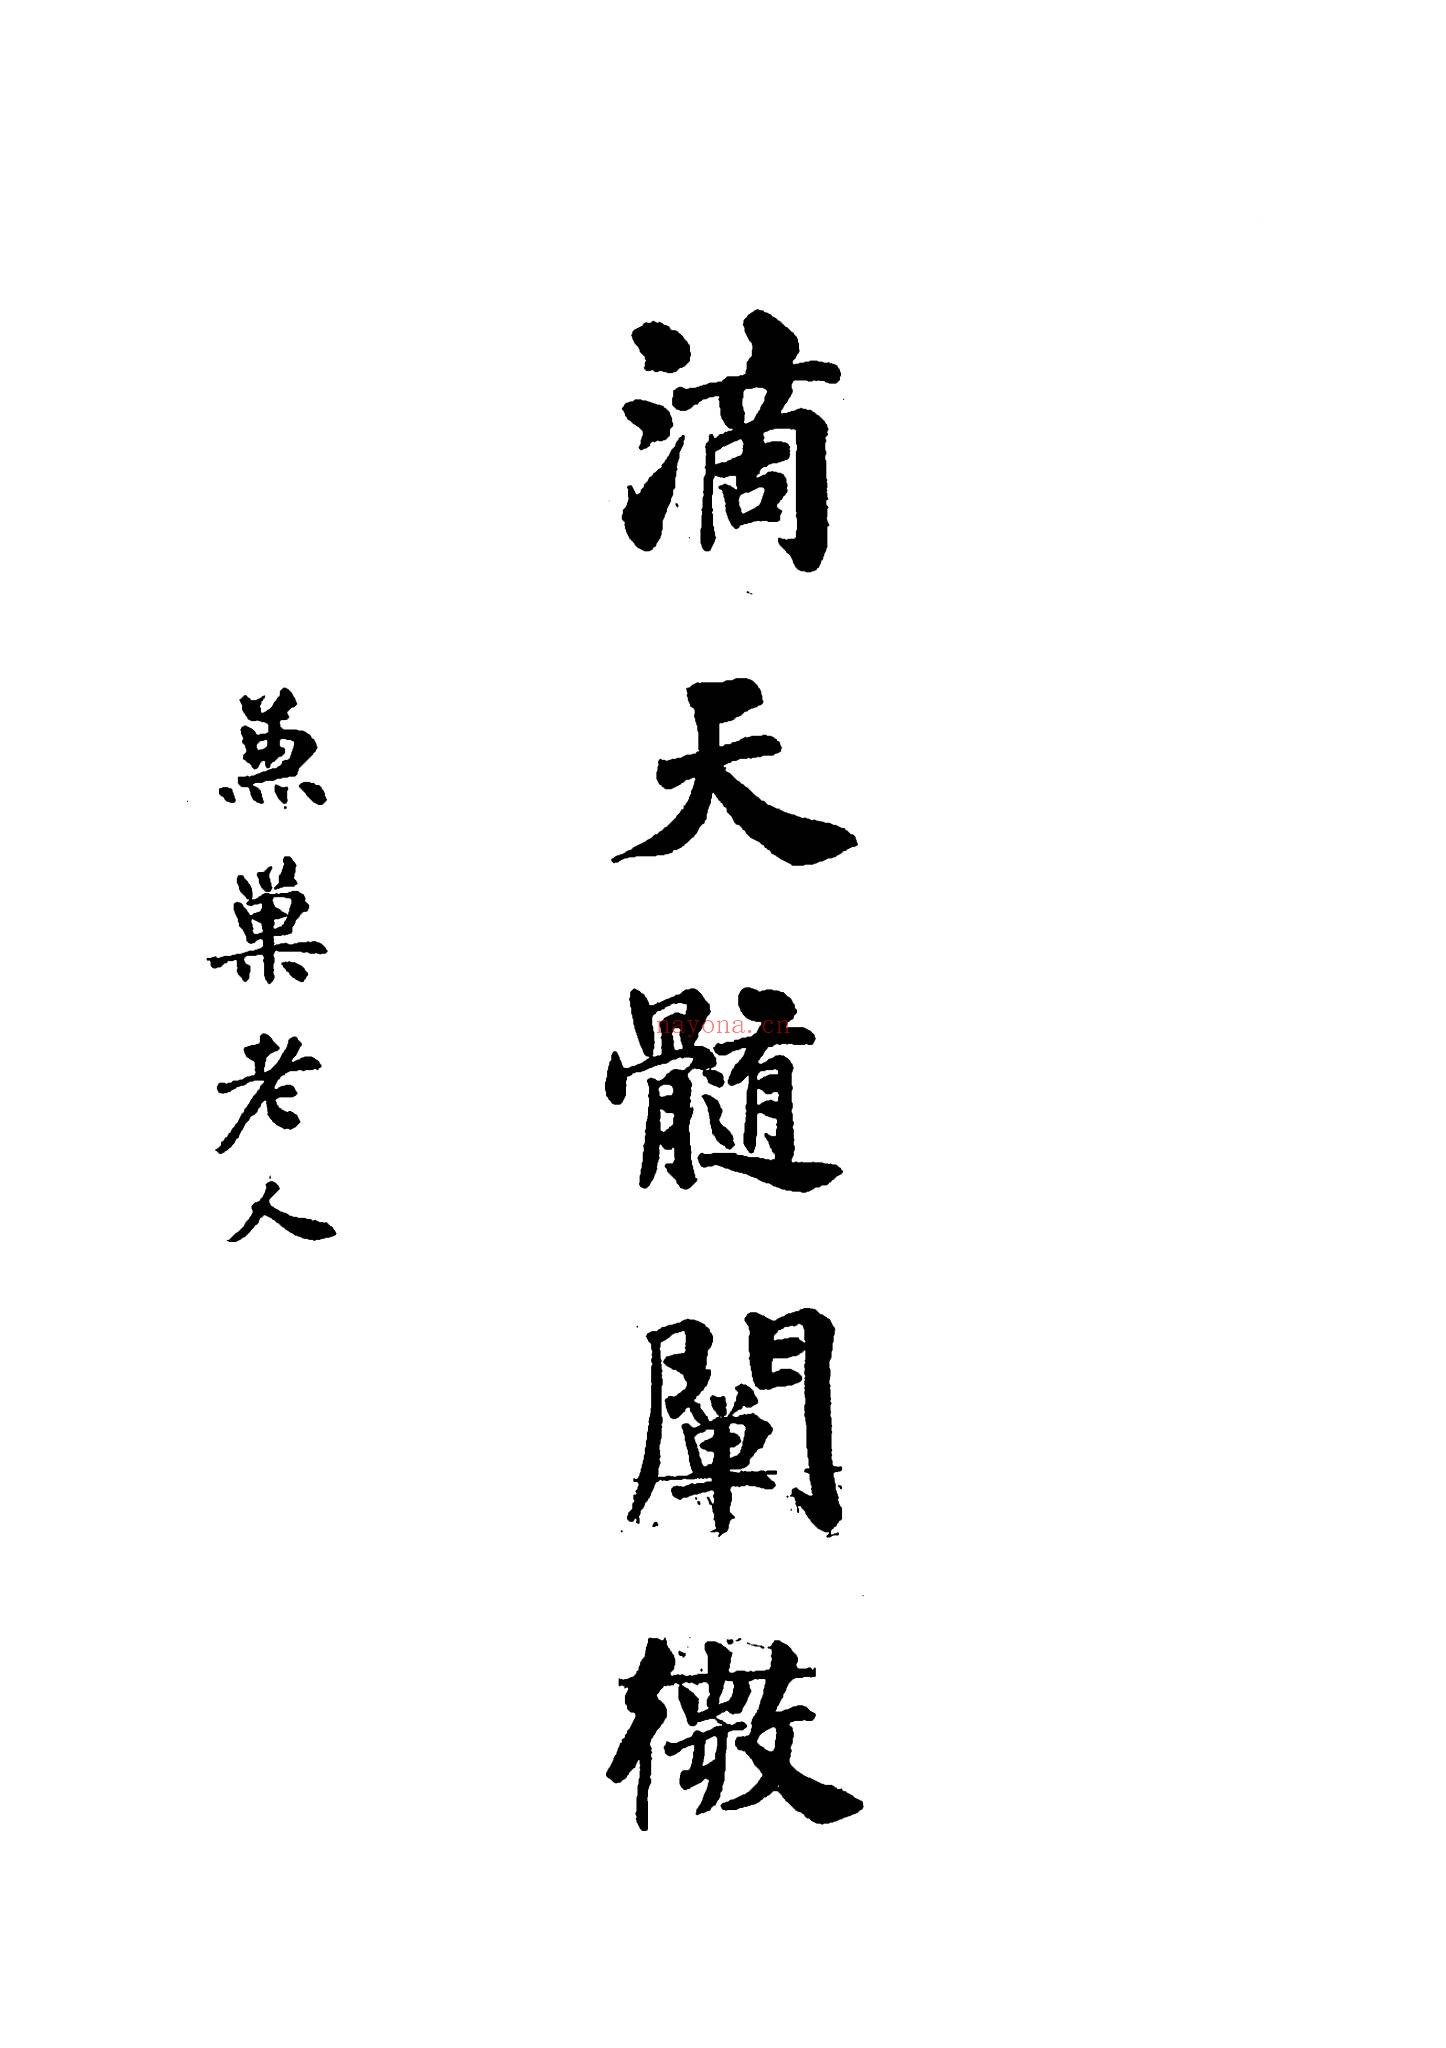 滴天髓闡微
兼巢老人
nayona.cn